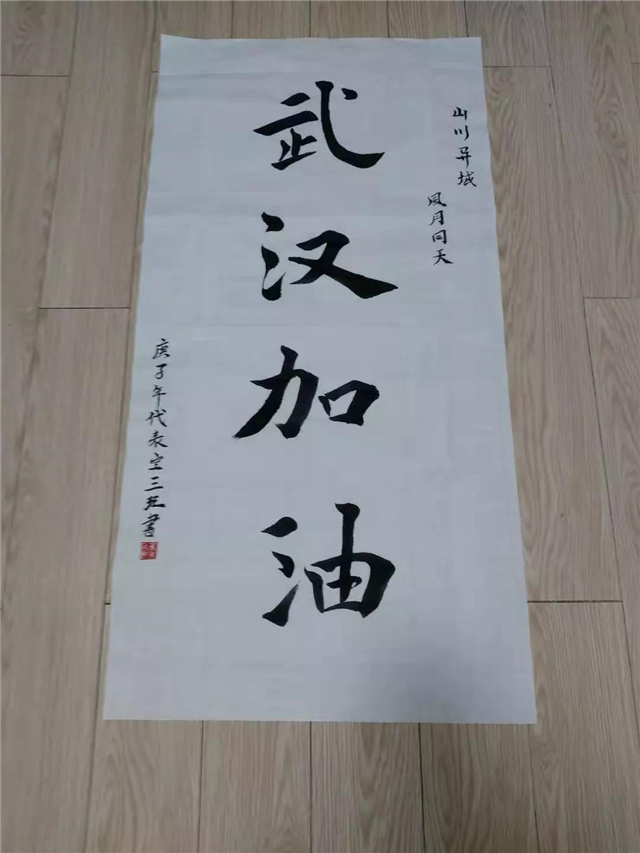 山川异域
风月同天
武汉加油
庚子年代表空三班书